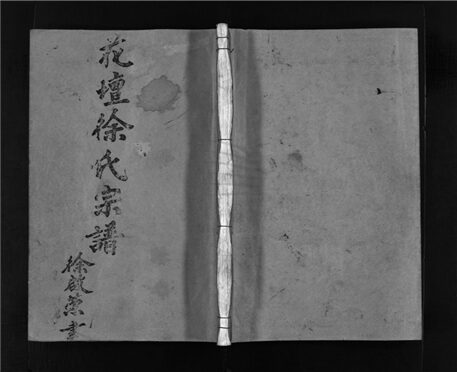 花壇徐氏宗譜
徐啟